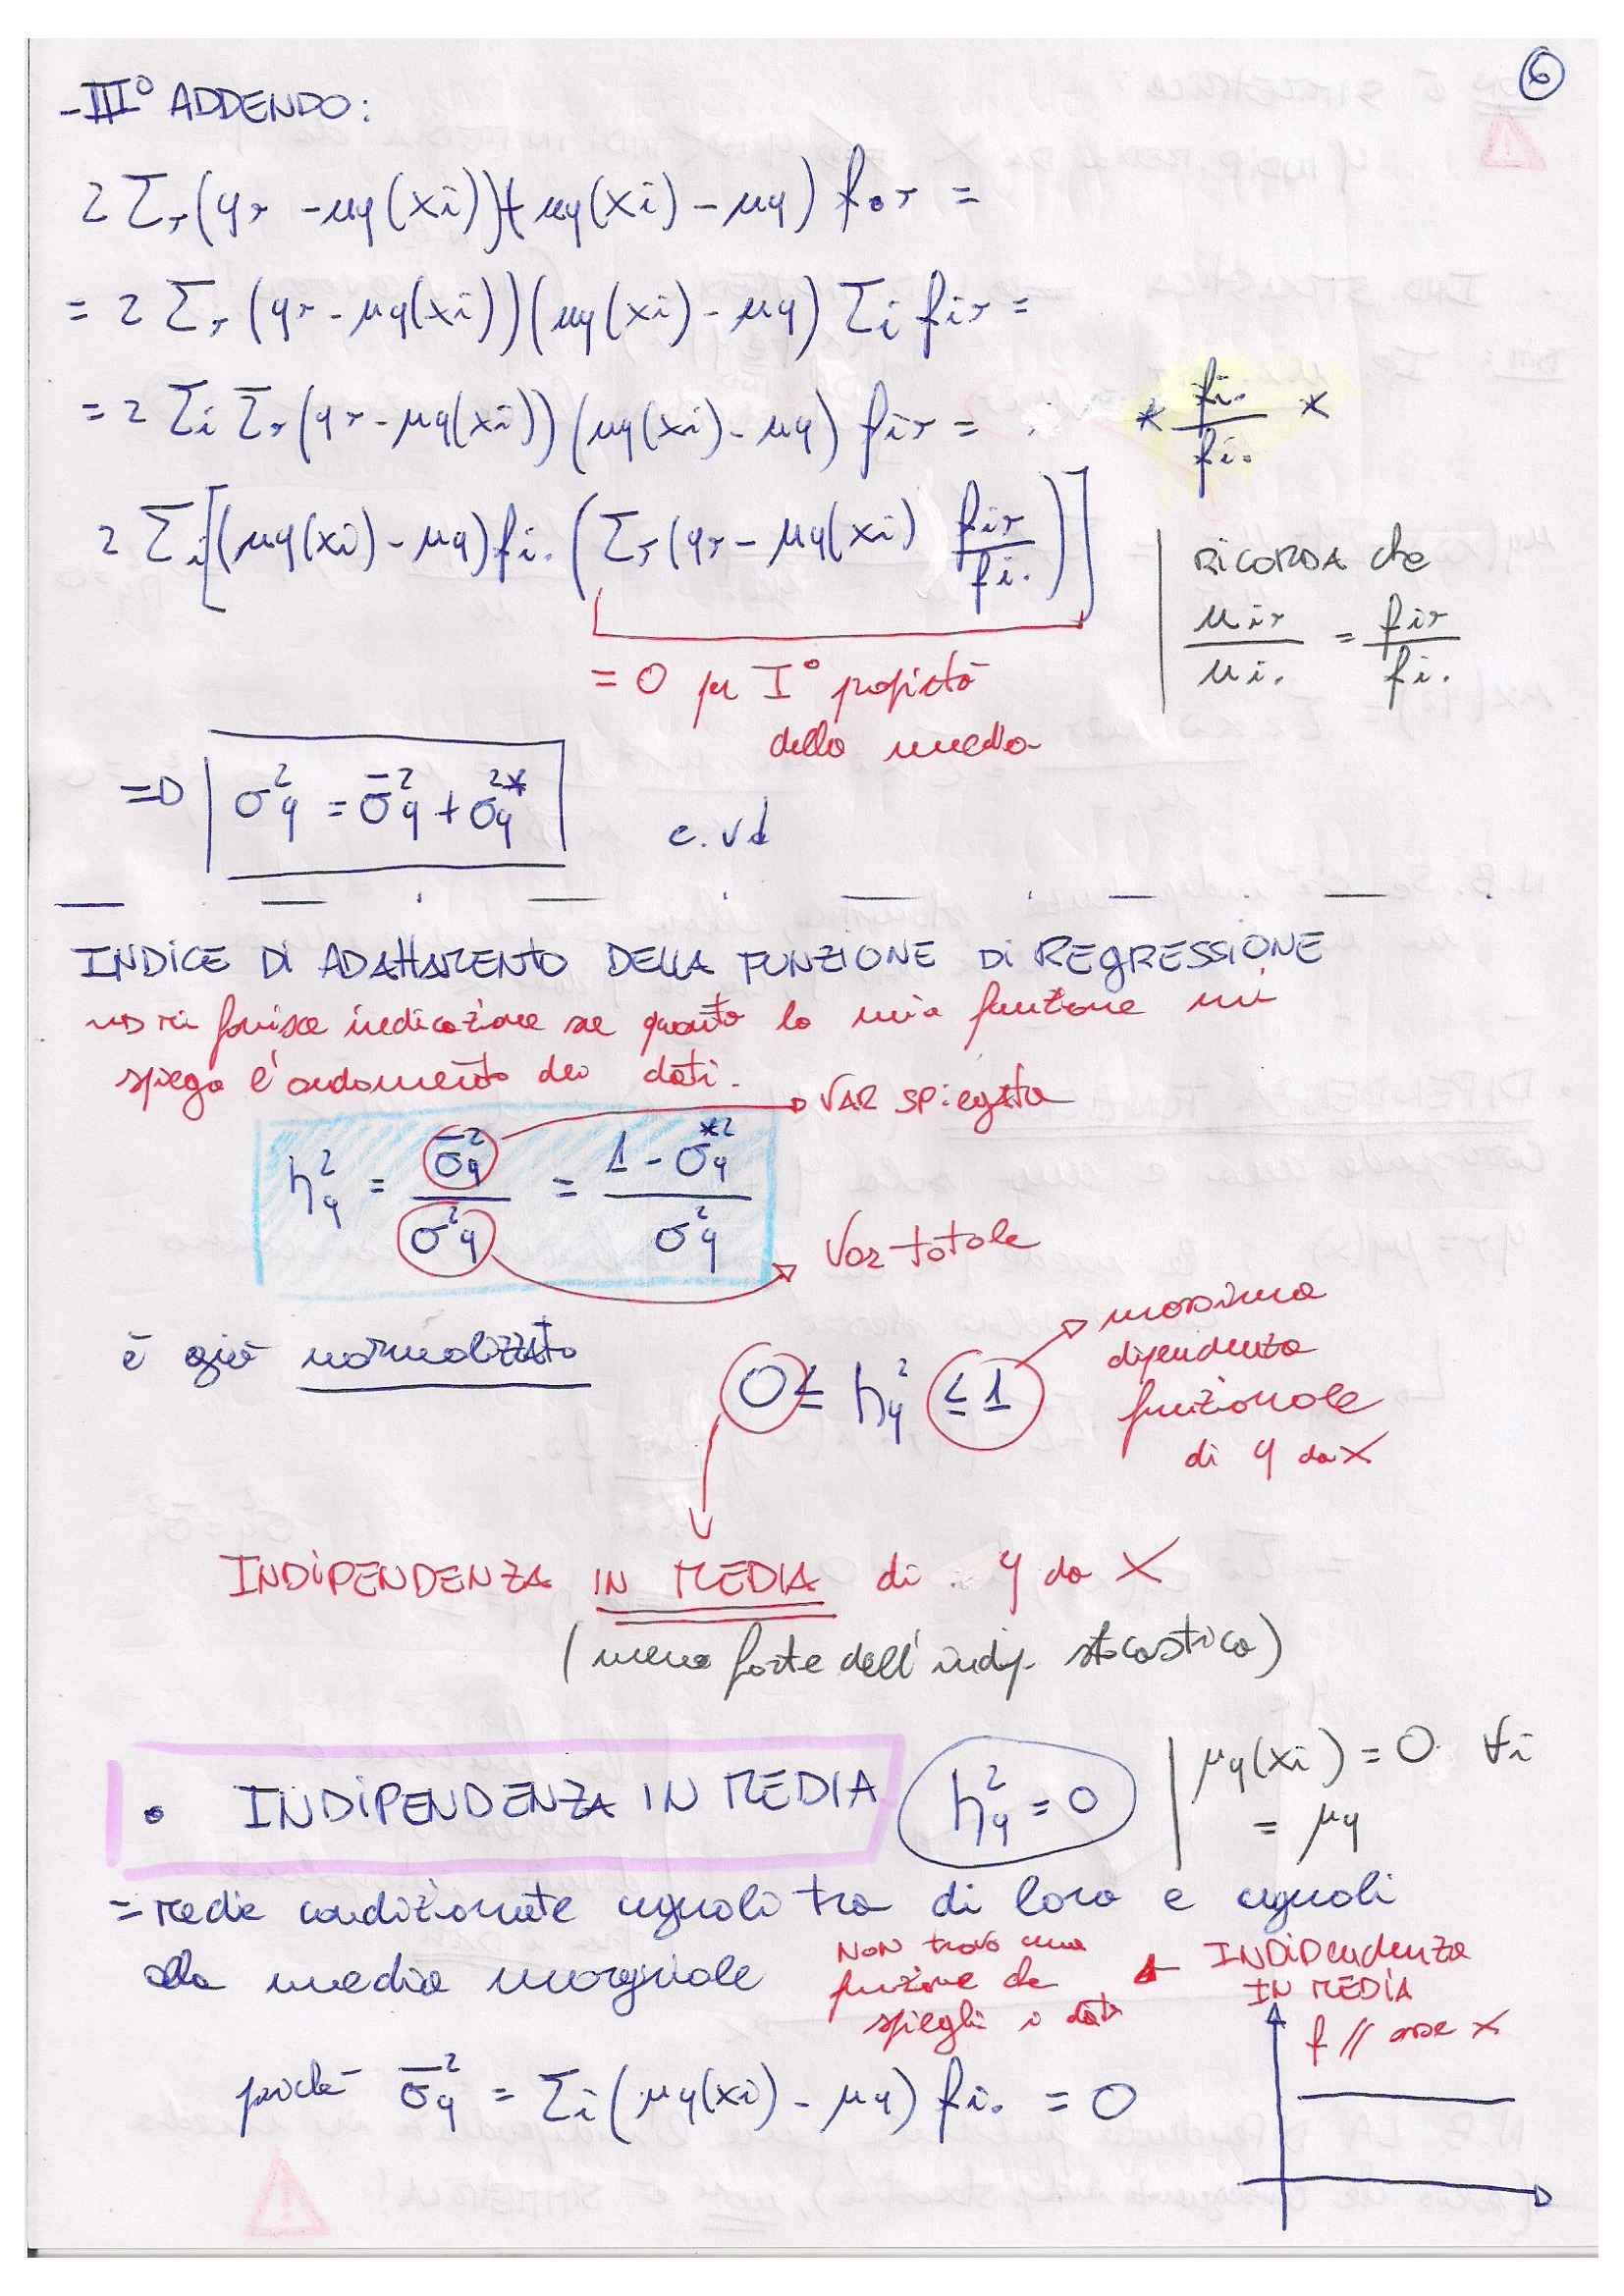 6
-III° ADDENDO:
2 Σr (yr - μy(xi))(+ μy(xi) - μy) f•r =
= 2 Σr (yr - μy(xi)) (μy(xi) - μy) Σi fir =
= 2 Σi Σr (yr - μy(xi)) (μy(xi) - μy) fir = * fi. / fi. *
2 Σi [(μy(xi) - μy) fi. (Σr (yr - μy(xi) fir / fi.)]
RICORDA che
nir / ni. = fir / fi.
= 0 per I° proprietà
della media
=D σ²y = σ̄²y + σ²*y c.v.d
INDICE DI ADATTAMENTO DELLA FUNZIONE DI REGRESSIONE
mi fornisce indicazione su quanto la mia funzione mi
spiega l'andamento dei dati.
VAR SPiegata
h²y = σ̄²y / σ²y = 1 - σ*²y / σ²y
Var totale
è già normalizzato
0 ≤ h²y ≤ 1
massima
dipendenza
funzionale
di y da X
INDIPENDENZA IN MEDIA di y da X
(meno forte dell'indip. stocastica)
• INDIPENDENZA IN MEDIA h²y = 0
μy(xi) = 0 ∀i
= μy
= Medie condizionate uguali tra di loro e uguali
alla media marginale
NON trovo una
funzione che
spieghi i dati
INDIPendenza
IN MEDIA
f // asse x
poiché σ̄²y = Σi (μy(xi) - μy) fi. = 0